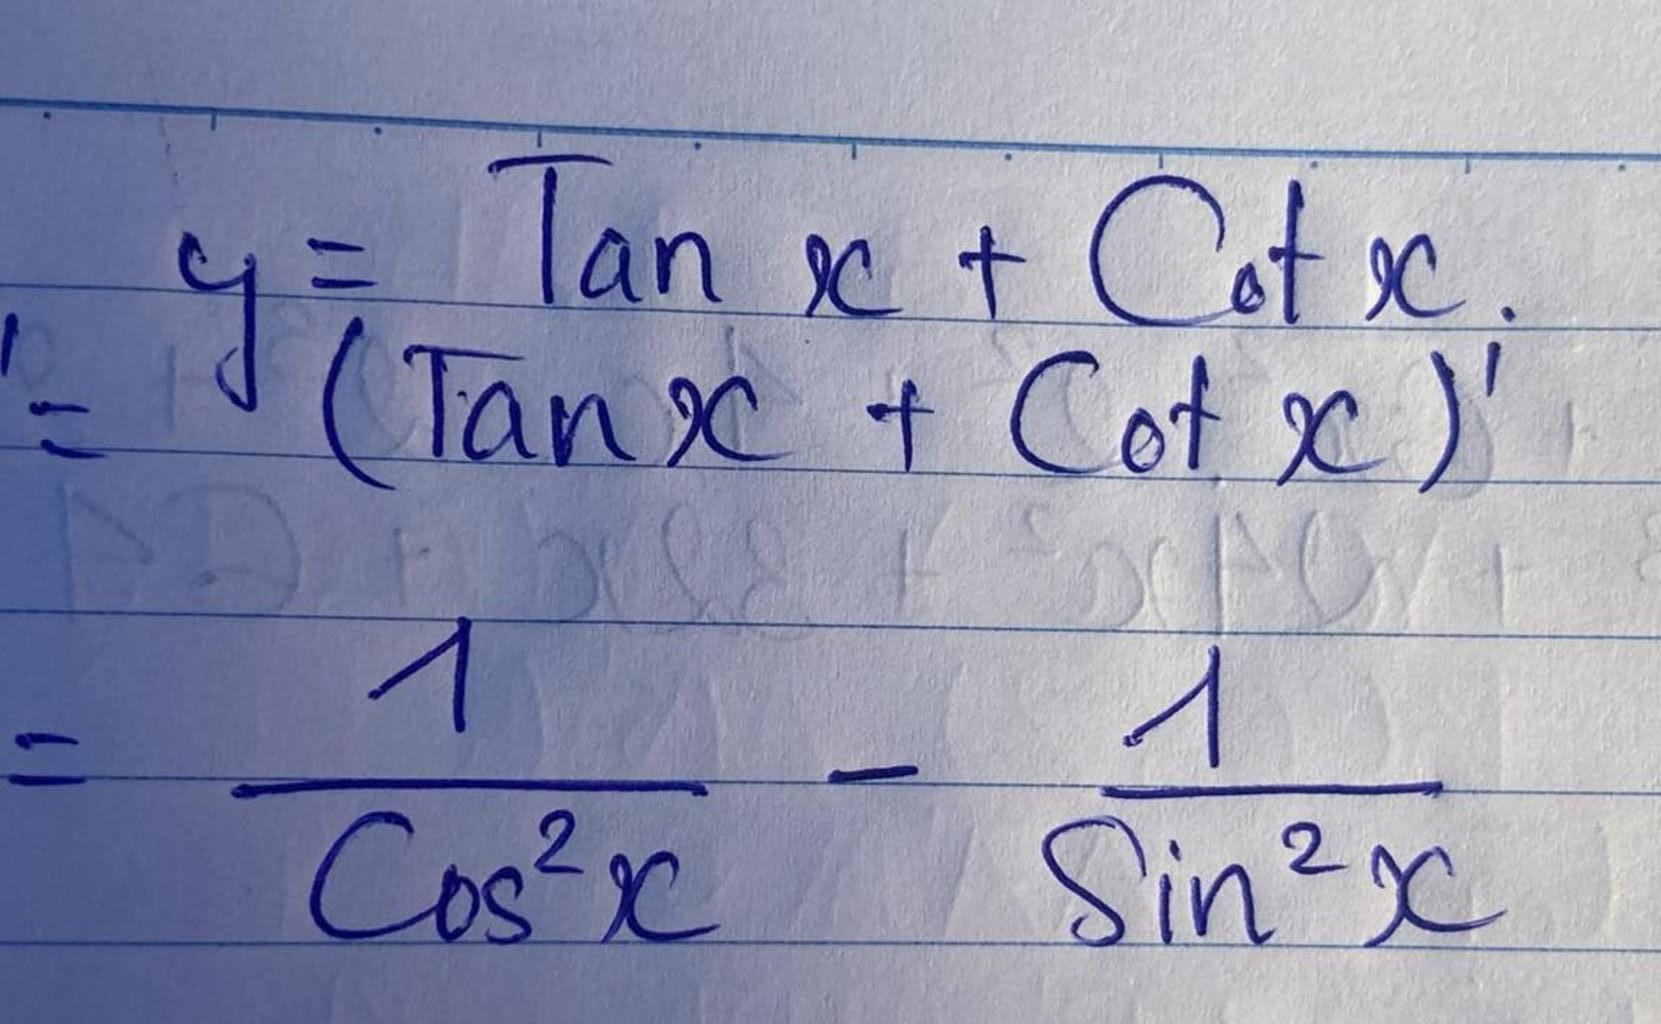 y = Tan x + Cot x.
' = (Tan x + Cot x)'
= 1/Cos²x - 1/Sin²x